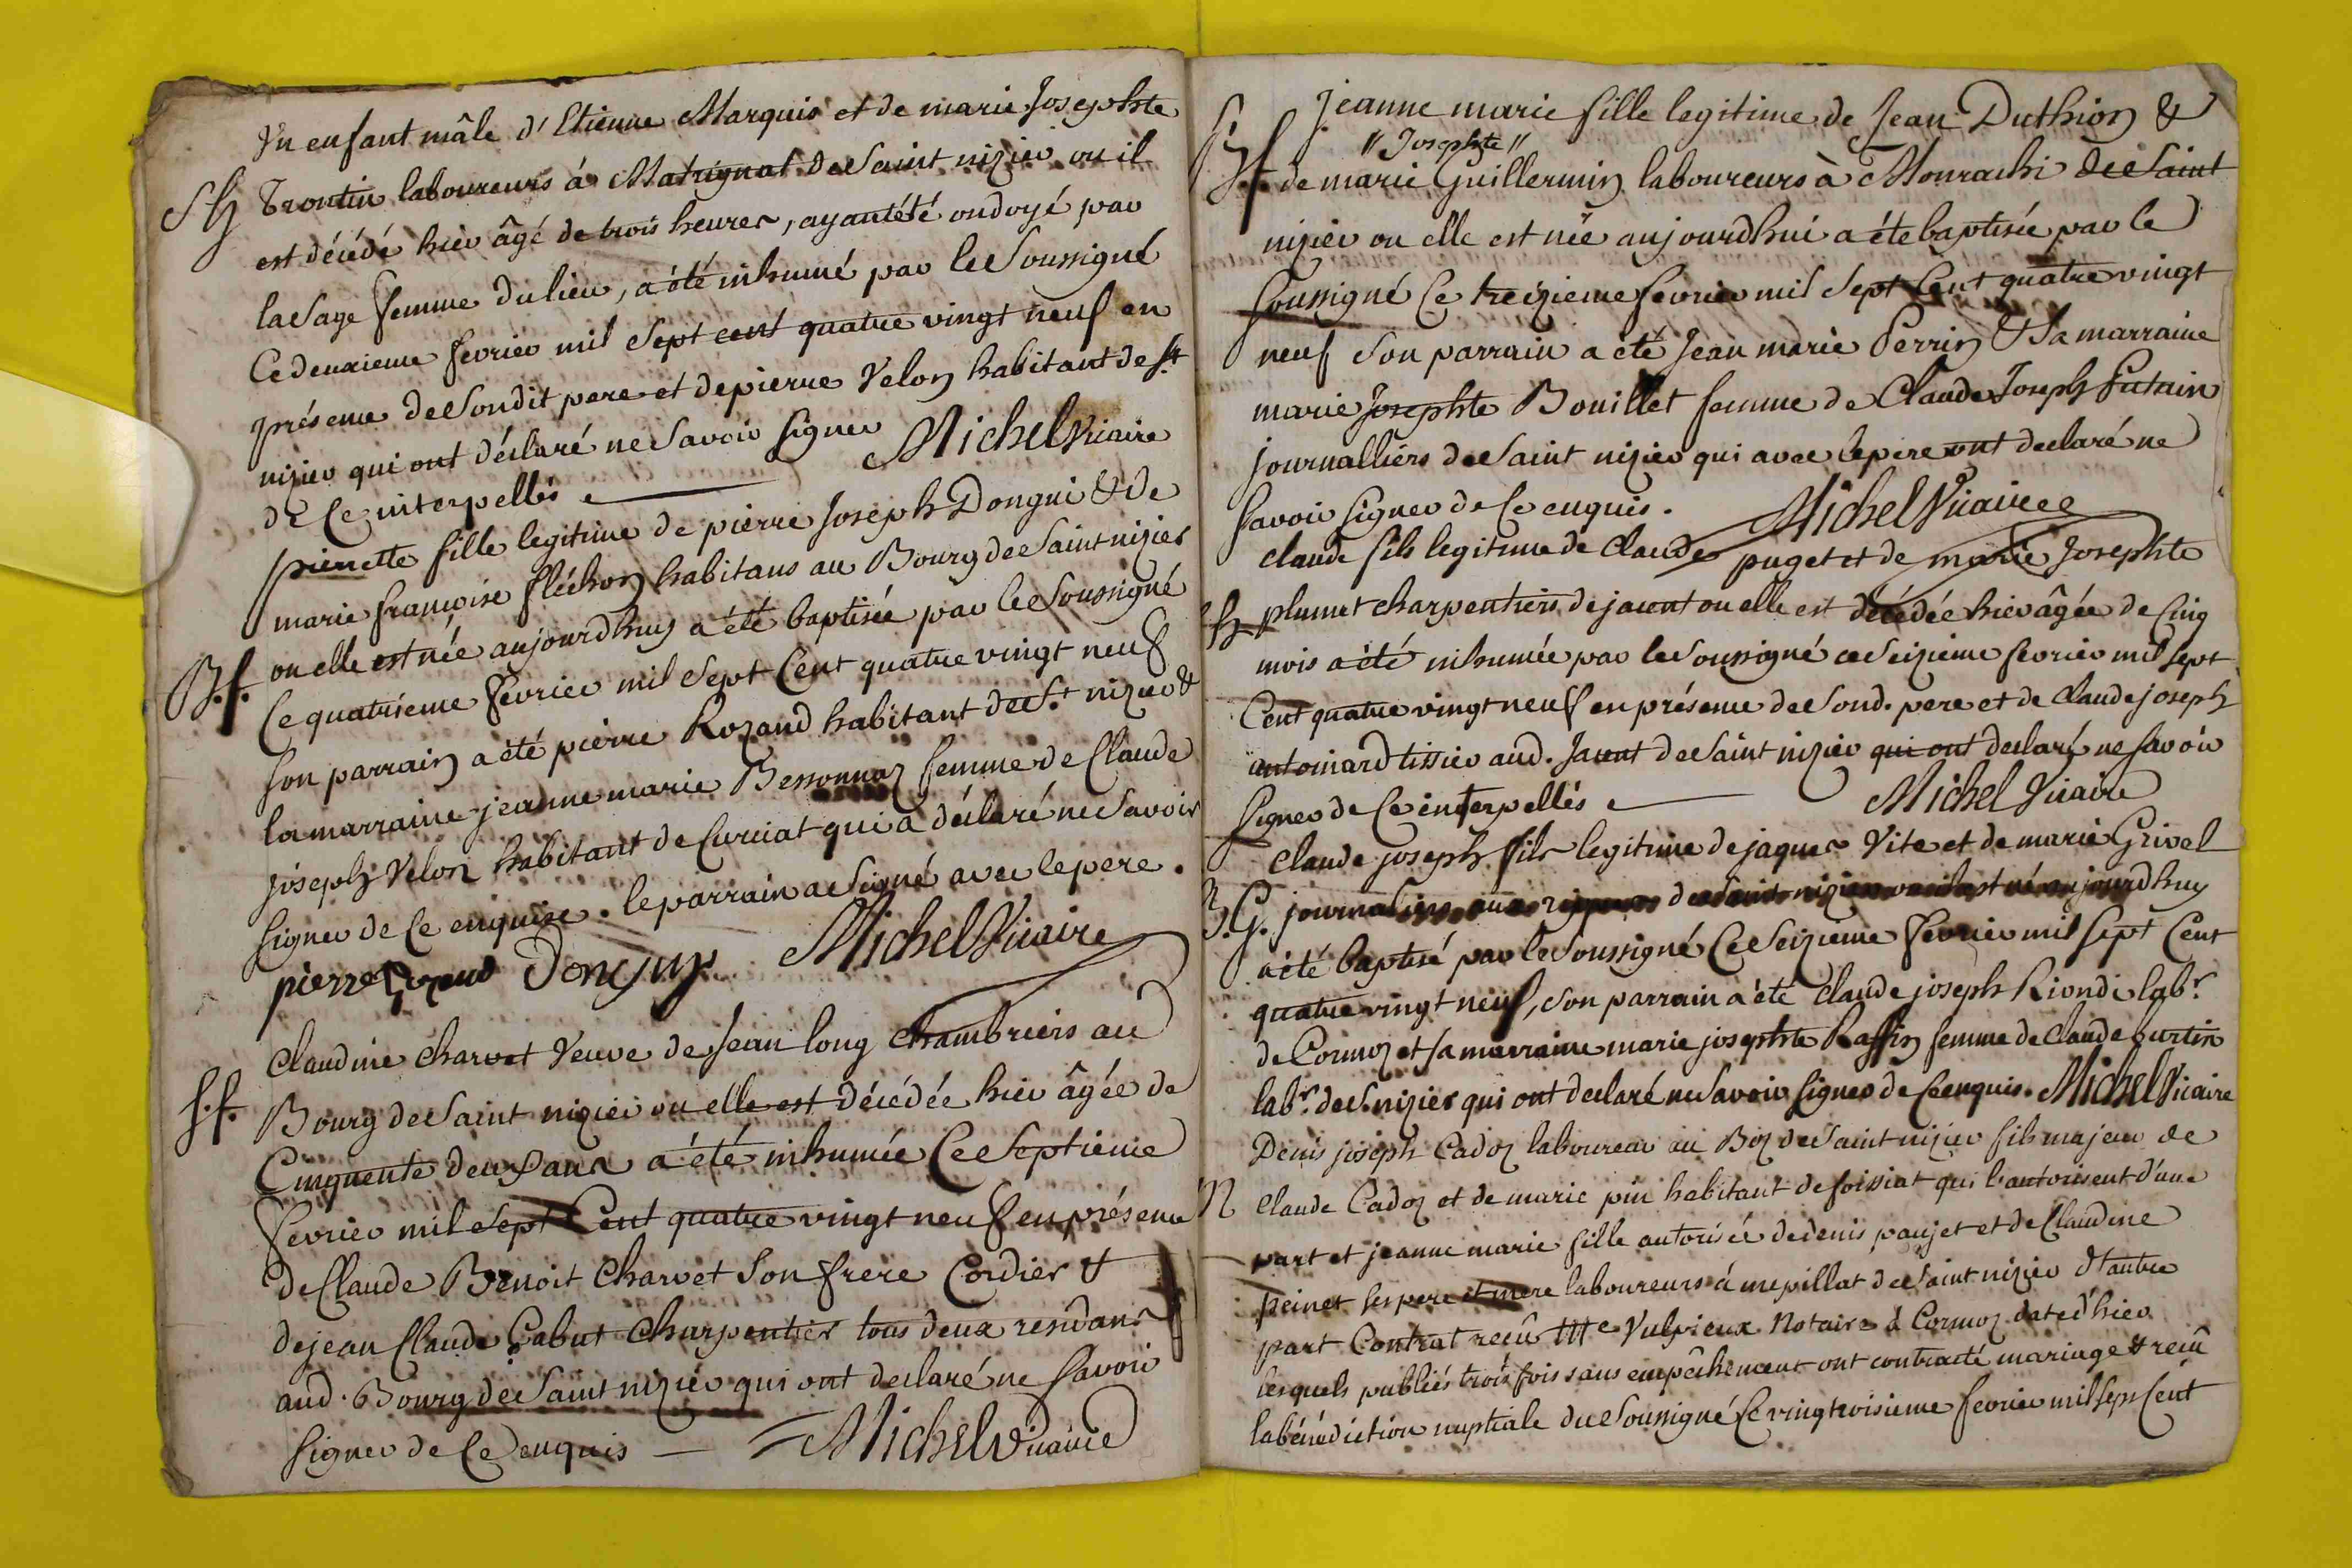 Un enfant mâle d'Etienne Marquis et de marie Josephte
Sh Trontin laboureurs à Matrignat de Saint nizier ou il
est décédé hier âgé de trois heures, ayant été ondoyé par
la Sage femme du lieu, a été inhumé par le Soussigné
Ce deuxieme fevrier mil Sept cent quatre vingt neuf en
présence de Sondit pere et de pierre Velon habitant de St
nizier qui ont déclaré ne Savoir Signer
de Ce interpellés Michel Vicaire
pierrette fille legitime de pierre Joseph Donguï & de
marie francoise fléchon habitans au Bourg de Saint nizier
B.f. ou elle est née aujourdhuy a été baptisée par le Soussigné
Ce quatrieme fevrier mil Sept Cent quatre vingt neuf
Son parrain a été pierre Rozand habitant de St nizier &
la marraine jeanne marie Bessonnaz femme de Claude
Joseph Velon habitant de Curciat qui a déclaré ne Savoir
Signer de Ce enquise. le parrain a Signé avec le pere.
pierre Rozand Donguy Michel Vicaire
Claudine Charvet Veuve de Jean long Chambriers au
S.f. Bourg de Saint nizier ou elle est décédée hier âgée de
Cinquente deux ans a été inhumée Ce Septieme
fevrier mil Sept Cent quatre vingt neuf en présence
de Claude Benoit Charvet Son frere Cordier &
de jean Claude Cabut Charpentier tous deux residans
aud. Bourg de Saint nizier qui ont declaré ne Savoir
Signer de Ce enquis Michel Vicaire
Jeanne marie fille legitime de Jean Duthion &
" Josephte "
B.f. de marie Guillermin laboureurs à Monrachi de Saint
nizier ou elle est née aujourdhui a été baptisée par le
Soussigné Ce treizieme fevrier mil Sept Cent quatre vingt
neuf Son parrain a été Jean marie Perrin & Sa marraine
marie Josephte Bouillet femme de Claude Joseph Putain
journalliers de Saint nizier qui avec le pere ont declaré ne
Savoir Signer de Ce enquis. Michel Vicaire
Claude fils legitime de Claude puget et de marie Josephte
Sh plumet charpentiers de jacont ou elle est décédée hier âgée de Cinq
mois a été inhumée par le Soussigné ce Seizieme fevrier mil Sept
Cent quatre vingt neuf en présence de Sond. pere et de Claude joseph
antoinard tissier aud. Jacont de Saint nizier qui ont declaré ne Savoir
Signer de Ce interpellés Michel Vicaire
Claude joseph fils legitime de jaques Vite et de marie Grivel
B.G. journaliers aux de Saint nizier ou il est né aujourdhuy
a été baptisé par le Soussigné Ce Seizieme fevrier mil Sept Cent
quatre vingt neuf, Son parrain a été Claude joseph Riondi labr
de Cormoz et Sa marraine marie josephte Raffin femme de Claude burtin
labr. de S. nizier qui ont declaré ne Savoir Signer de Ce enquis. Michel Vicaire
Denis joseph Cadoz laboureur au Boz de Saint nizier fils majeur de
M Claude Cadoz et de marie pin habitant de foissiat qui l'autorisent d'une
part et jeanne marie fille autorisée de denis paujet et de Claudine
peinet Ses pere et mere laboureurs à mepillat de Saint nizier d'autre
part Contrat recû Me Vulpieux Notaire à Cormoz daté d'hier
lesquels publiés trois fois sans empêchement ont contracté mariage & reçû
la bénédiction nuptiale du Soussigné Ce vingtroisieme fevrier mil Sept Cent